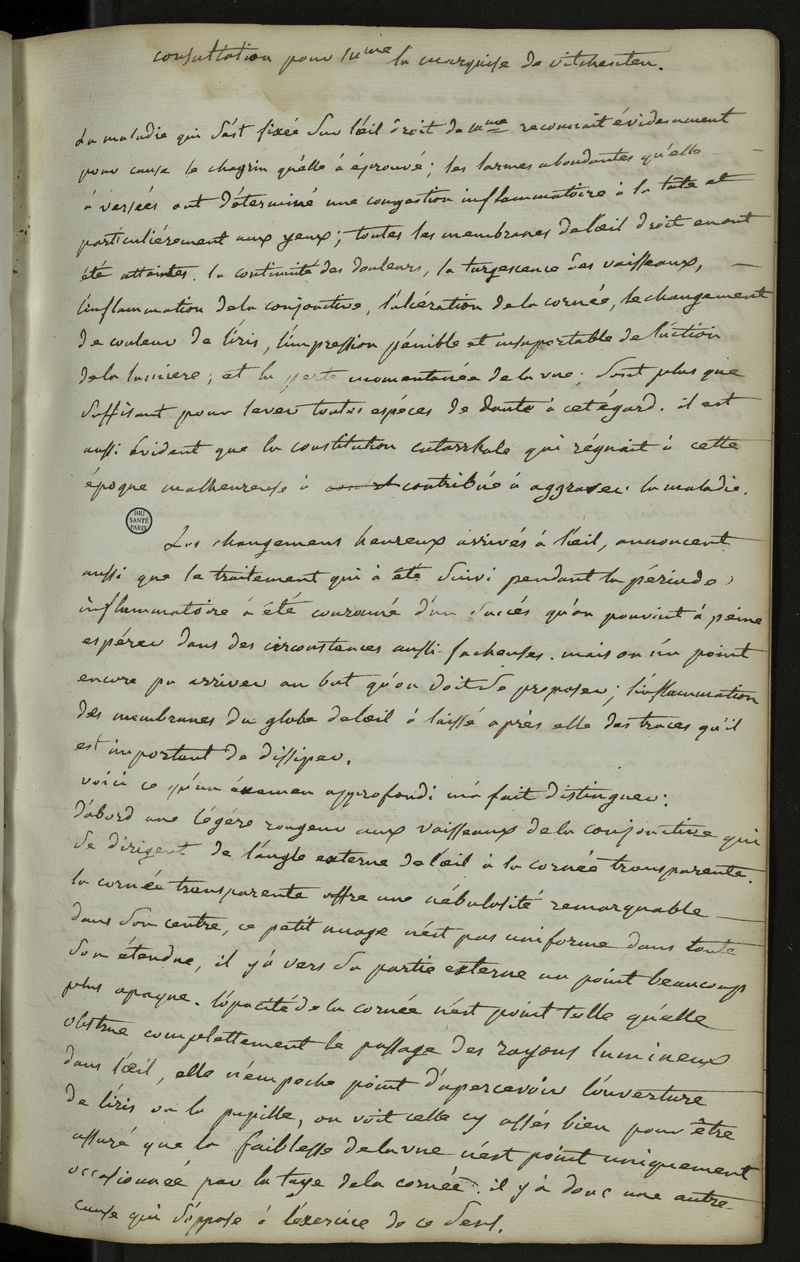 consultation pour mme la marquise de vitchenten.
La maladie qui s'est fixée sur l'œil droit de mme reconnait évidemment
pour cause le chagrin qu'elle à éprouvé; les larmes abondantes qu'elle
à versées ont déterminé une congestion inflammatoire à la tête et
particuliérement aux yeux; toutes les membranes de l'œil droit en ont
été atteintes. la continuité des douleurs, la turgescence des vaisseaux,
l'inflammation de la conjonctive, l'ulcération de la cornée, le changement
de couleur de l'iris, l'impression pénible et insuportable de l'action
de la lumiere; et la perte momentanée de la vue; sont plus que
suffisant pour lever toutes espéces de doute à cet égard. il est
aussi évident que la constitution catarrhale qui régnait à cette
époque malheureuse à contribuée à aggraver la maladie.
BIU
SANTÉ
PARIS
Les changemens heureux arrivés à l'œil, annoncent
aussi que le traitement qui à été suivi pendant la période
inflammatoire à été couronné d'un succés qu'on pouvait à peine
espérer dans des circonstances aussi facheuses. mais on n'a point
encore pu arriver au but qu'on doit se proposer; l'inflammation
des membranes du globe de l'œil à laissé aprés elle des traces qu'il
est important de dissiper.
voici ce qu'un éxamen approfondi m'a fait distinguer:
d'abord une légére rougeur aux vaisseaux de la conjonctive qui
se dirigent de l'angle externe de l'œil à la cornée transparente.
la cornée transparente offre une nébulosité remarquable
dans son centre, ce petit nuage n'est pas uniforme dans toute
son étendue, il y à vers sa partie externe un point beaucoup
plus opaque. l'opacité de la cornée n'est point telle qu'elle
obstrue complettement le passage des rayons lumineux
dans l'œil, elle n'empeche point d'apercevoir l'ouverture
de l'iris ou la pupille, on voit celle cy assés bien pour être
assuré que la faiblesse de la vue n'est point uniquement
occasionnée par la taye de la cornée: il y à donc une autre
cause qui s'oppose à l'éxercice de ce sens.